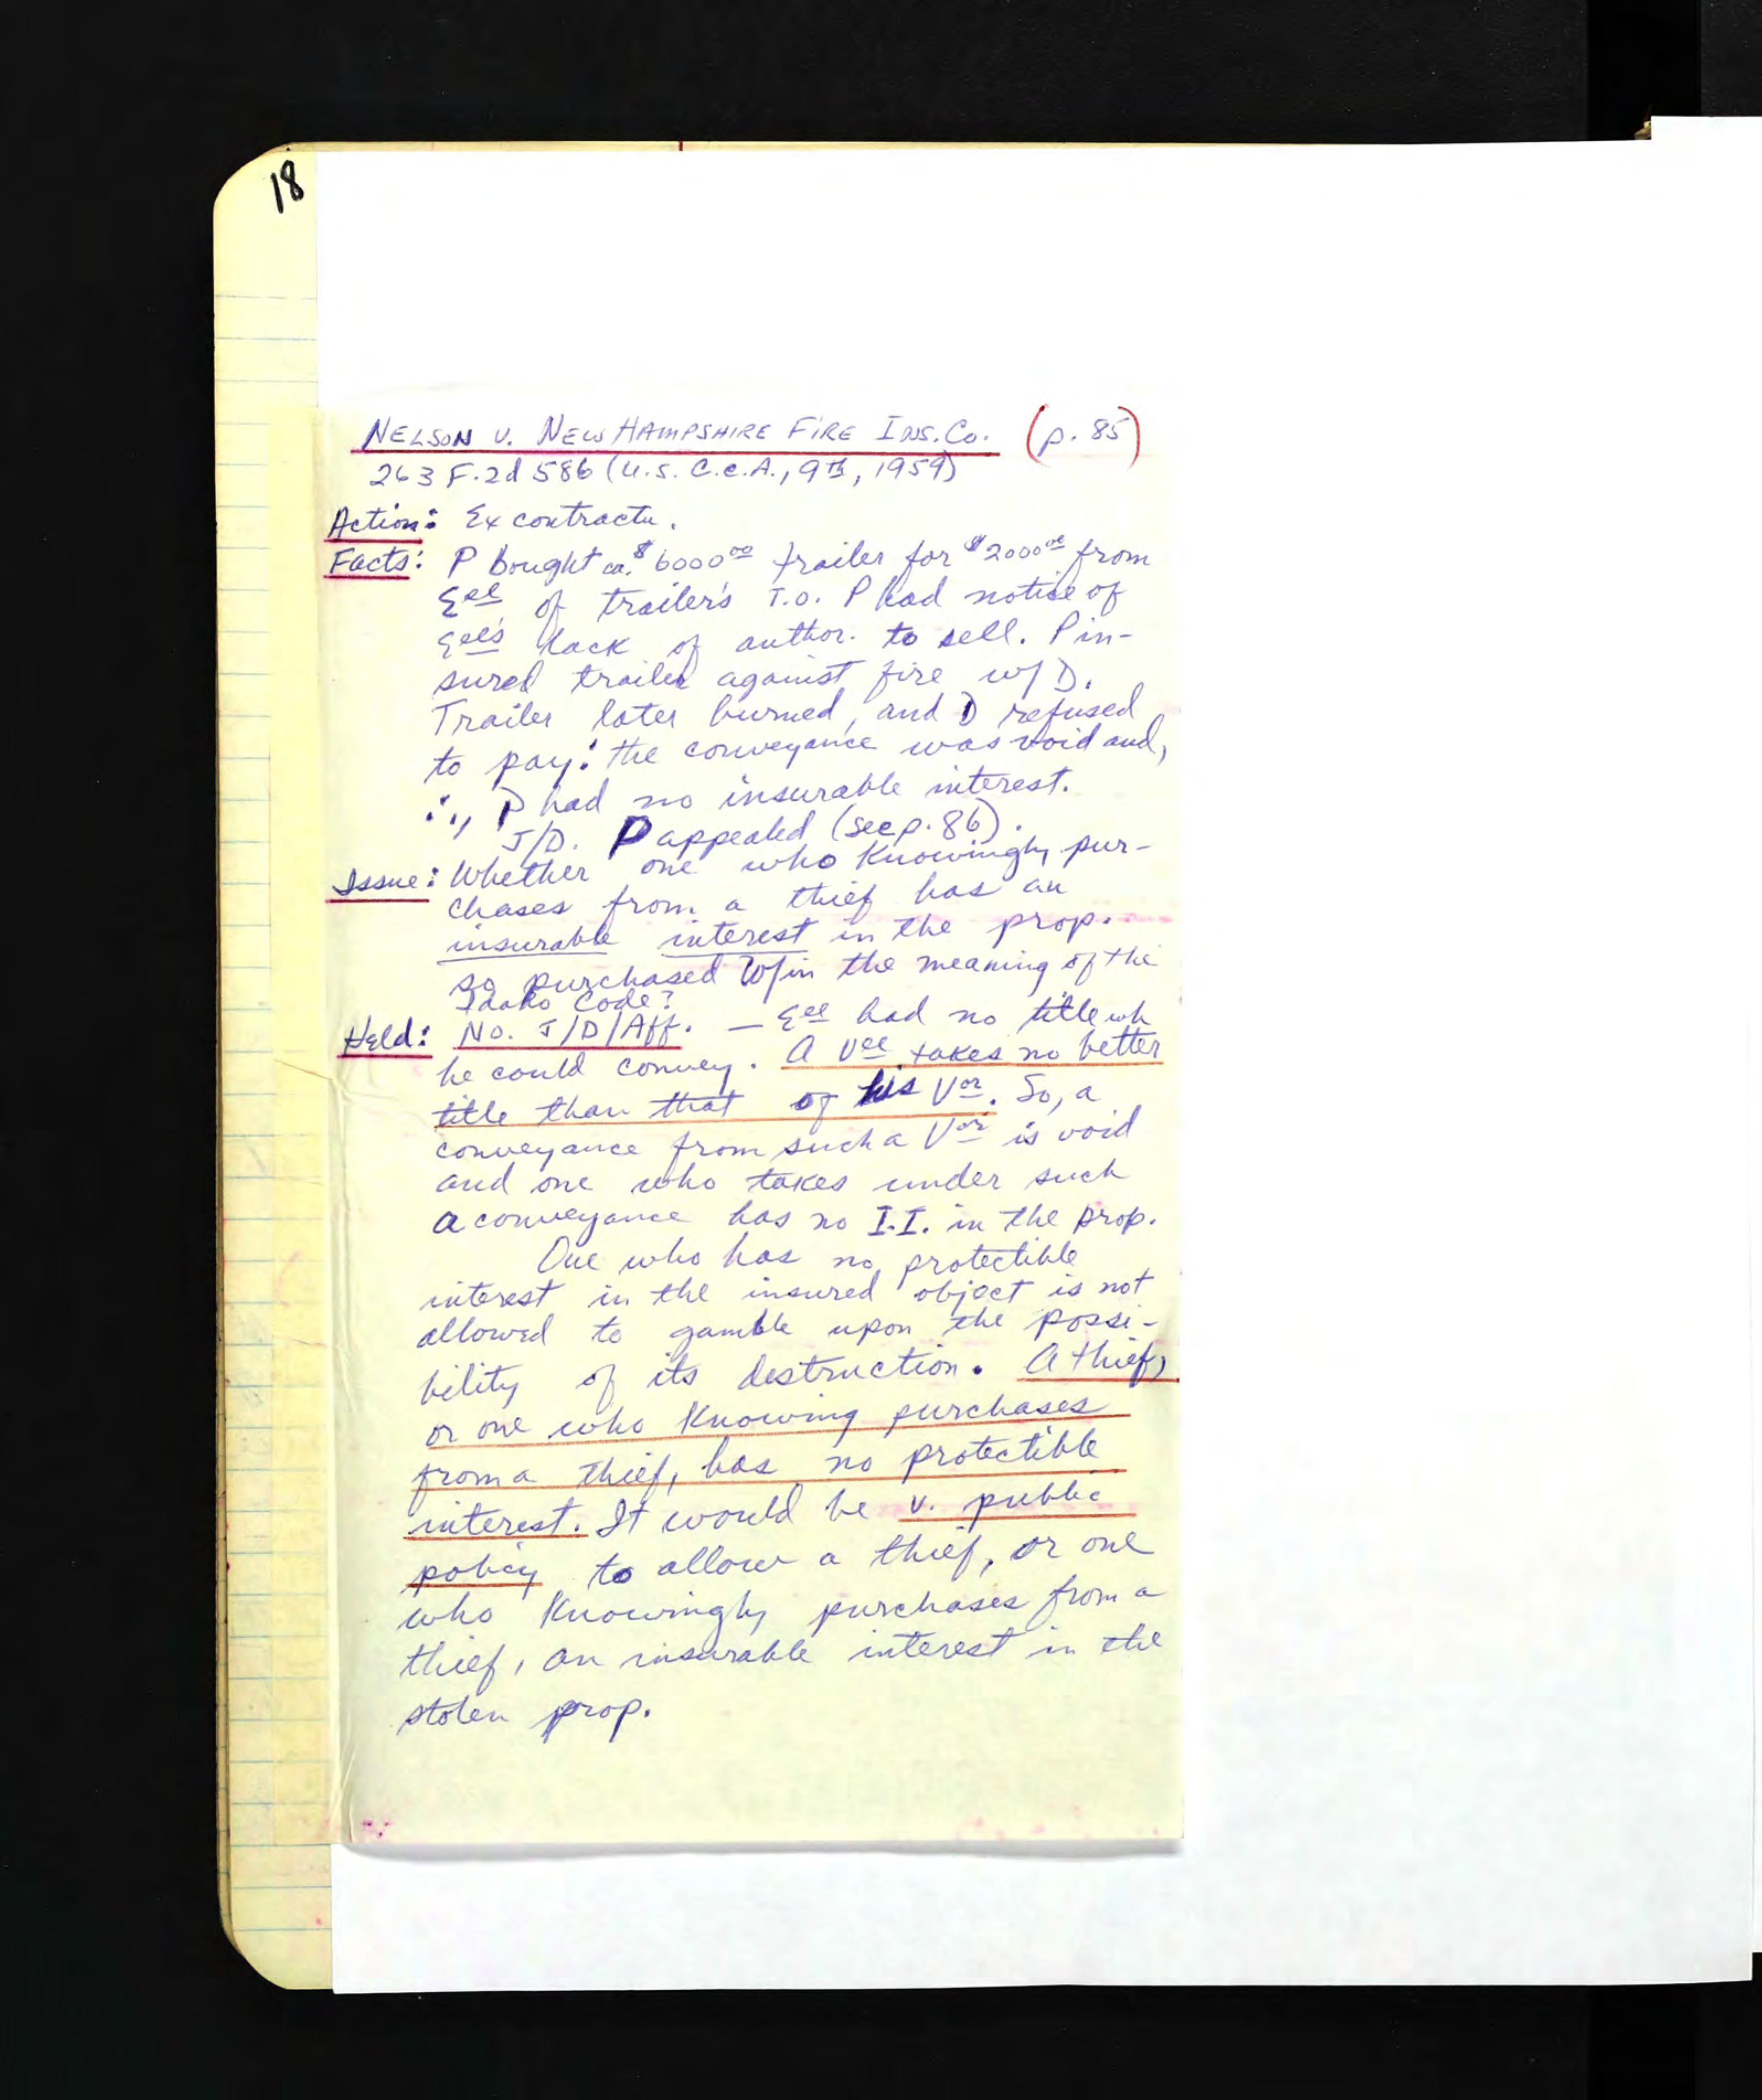 18
NELSON V. NEW HAMPSHIRE FIRE INS. Co. (p. 85)
263 F.2d 586 (U.S. C.C.A., 9th, 1959)
Action: Ex contractu.
Facts: P bought ca. $6000.00 trailer for $2000.00 from
Eee of trailer's T.O. P had notice of
Eee's lack of author. to sell. P in-
sured trailer against fire w/ D.
Trailer later burned, and D refused
to pay: the conveyance was void and,
∴, P had no insurable interest.
J/D. P appealed (see p. 86).
Issue: Whether one who knowingly pur-
chases from a thief has an
insurable interest in the prop.
so purchased w/in the meaning of the
Idaho Code?
Held: No. J/D/Aff. — Eee had no title wh
he could convey. A Vee takes no better
title than that of his Vor. So, a
conveyance from such a Vor is void
and one who takes under such
a conveyance has no I.I. in the prop.
One who has no protectible
interest in the insured object is not
allowed to gamble upon the possi-
bility of its destruction. A thief,
or one who knowing purchases
from a thief, has no protectible
interest. It would be v. public
policy to allow a thief, or one
who knowingly purchases from a
thief, an insurable interest in the
stolen prop.